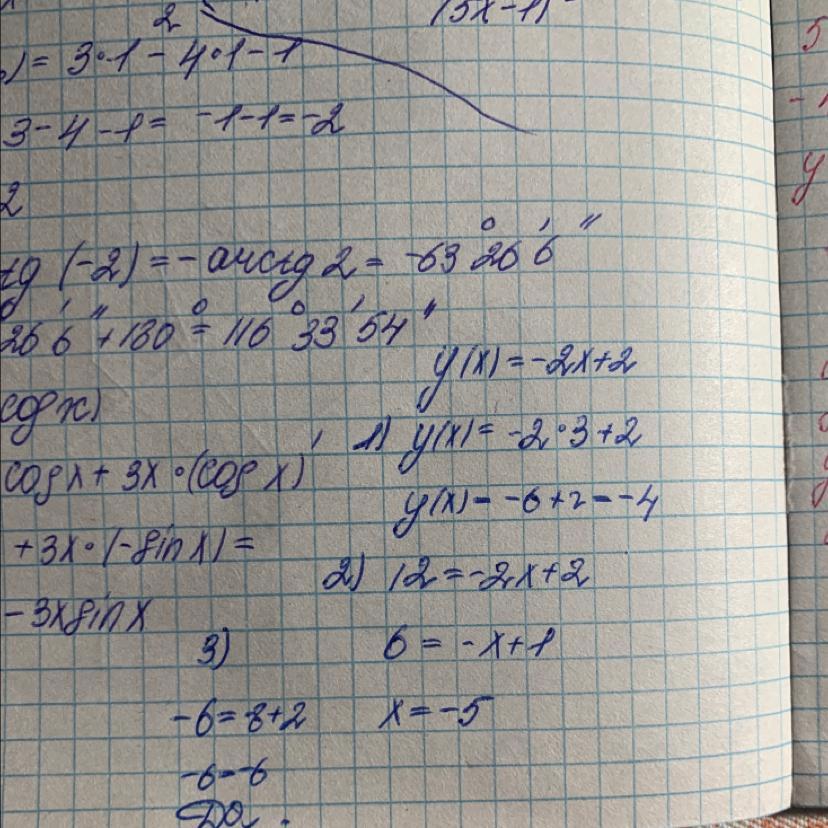 2
(5x-1)
)= 3·1 - 4·1 - 1
3-4-1= -1-1=-2
2
tg (-2) = - arctg 2 = -63°26'6"
26'6" + 180° = 116°33'54"
y(x) = -2x+2
cos x)
1) y(x) = -2·3+2
cos x + 3x·(cos x)'
y(x) = -6+2 = -4
+3x·(-sin x) =
2) 12 = -2x+2
-3x sin x
3)
6 = -x+1
-6 = 8+2
x = -5
-6=-6
Да.
5
-1
y